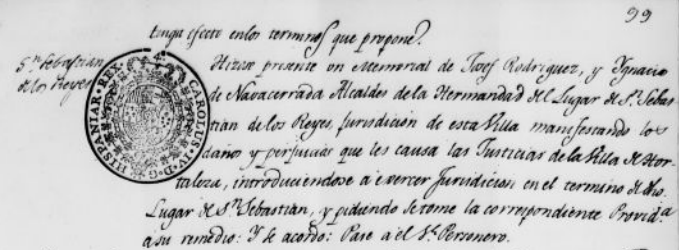 99
tenga efecto enlos terminos que propone.
Sn. Sebastian
de los Reyes
HISPANIAR. REX. CAROLUS. D. G.
Hizose presente un Memorial de Josef Rodriguez, y Ygnacio
de Navacerrada Alcaldes de la Hermandad del Lugar de Sn. Sebas
tian de los Reyes, jurisdicion de esta Villa manifestando los
daños y perjuicios que les causa las Justicias de la Villa de Hor-
taleza, introduciendose a exercer Jurisdicion en el termino de dho
Lugar de Sn. Sebastian, y pidiendo se tome la correspondiente Provida
a su remedio: Y se acordo: Pase a el Sr. Personero.